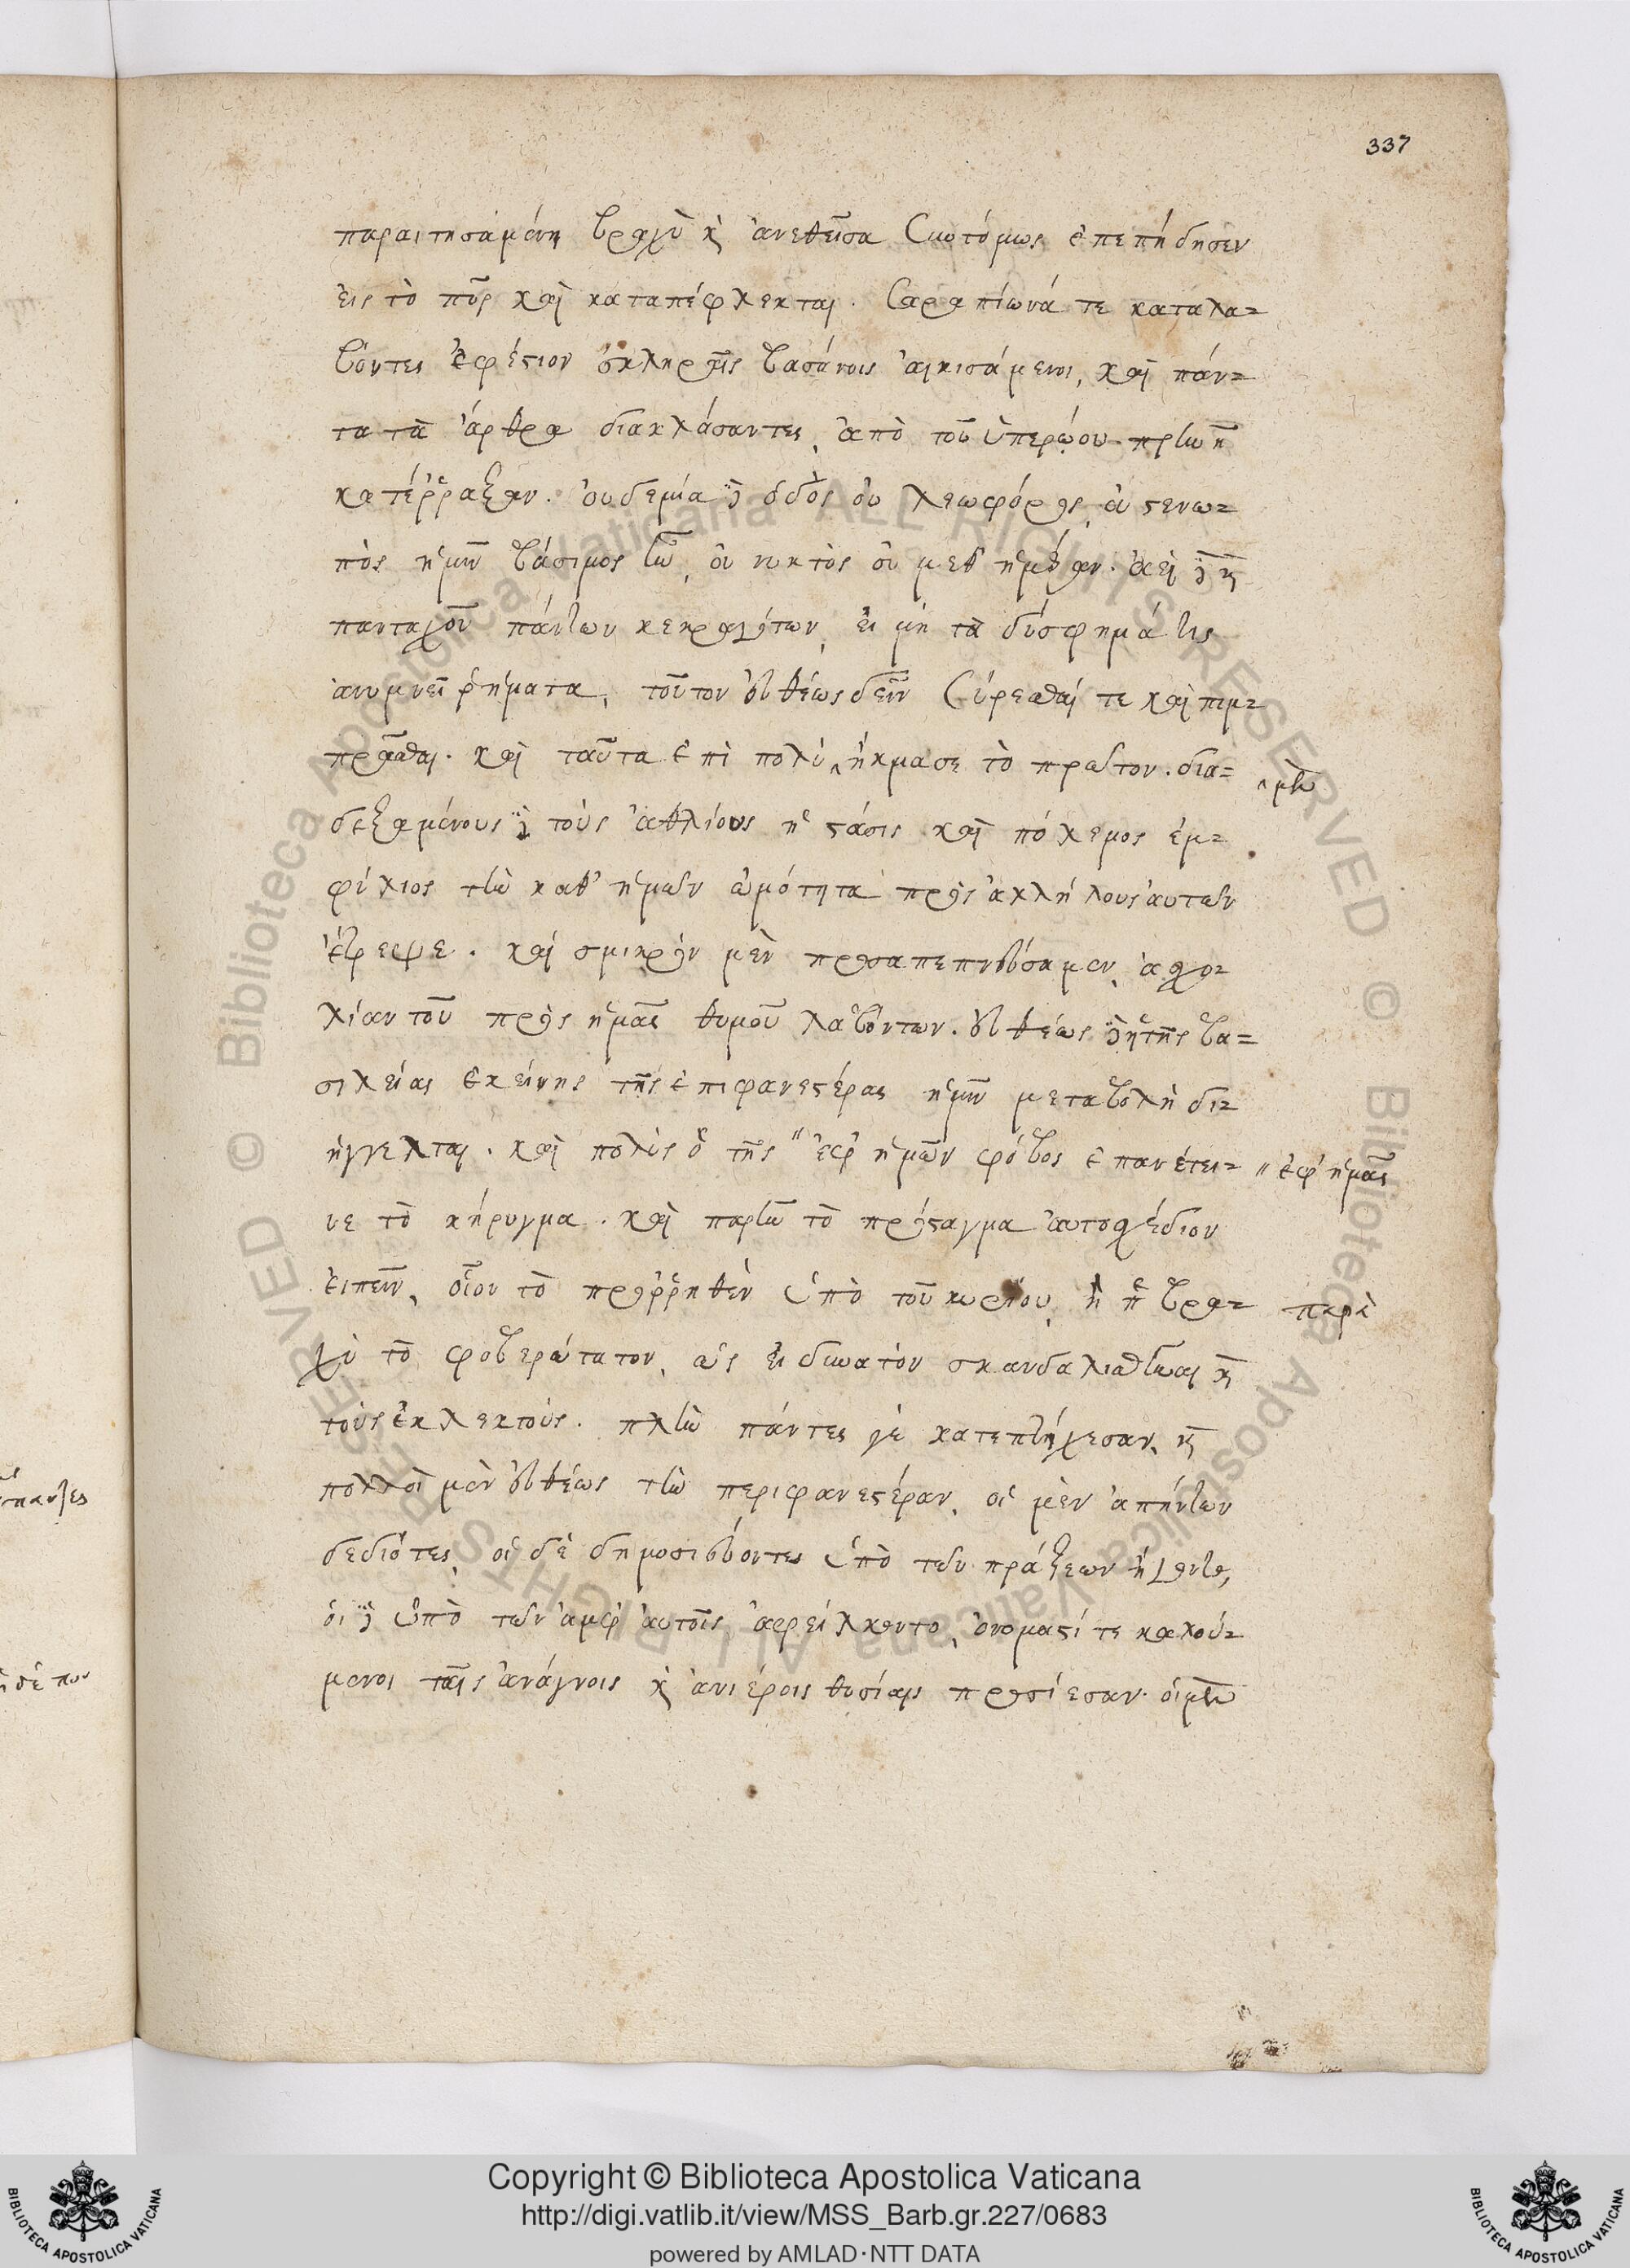 337
παραιτησαμένη βραχὺ κ̀ ἀνεθεῖσα συντόμως ἐπεπήδησεν
εἰς τὸ πῦρ καὶ καταπέφλεκται. Σαραπίωνά τε καταλα=
βόντες ἐφέστιον σκληραῖς βασάνοις αἰκισάμενοι, καὶ πάν=
τα τὰ ἄρθρα διακλάσαντες, ἀπὸ τοῦ ὑπερῴου πρηνῆ
κατέῤῥαξαν. οὐδεμία δὲ ὁδὸς οὐ λεωφόρος, οὐ στενω=
πὸς ἡμῖν βάσιμος ἦν, οὐ νυκτὸς οὐ μεθ' ἡμέραν. ἀεὶ δὲ κ̀
πανταχοῦ πάντων κεκραγότων, εἰ μὴ τὰ δύσφημά τις
ἀνυμνεῖ ῥήματα, τοῦτον εὐθέως δεῖν σύρεσθαί τε καὶ πιμ=
πρᾶσθαι. καὶ ταῦτα ἐπὶ πολὺ ‸ ἤκμασε τὸ πρῶτον. δια=
‸ μὲν
δεξαμένους δὲ τοὺς ἀθλίους ἡ στάσις καὶ πόλεμος ἐμ=
φύλιος τὴν καθ' ἡμῶν ὠμότητα πρὸς ἀλλήλους αὐτῶν
ἔτρεψε. καὶ σμικρὸν μὲν προσαπεπνεύσαμεν, ἀσχο=
λίαν τοῦ πρὸς ἡμᾶς θυμοῦ λαβόντων. εὐθέως δὲ ἡ τῆς βα=
σιλείας ἐκείνης τῆς ἐπιφανεστέρας ἡμῖν μεταβολὴ δι=
ήγγελται. καὶ πολὺς ὁ τῆς " ἐφ' ἡμῶν φόβος ἐπανέτει=
" ἐφ' ἡμᾶς
νε τὸ κήρυγμα. καὶ παρῆν τὸ πρόσταγμα αὐτοσχέδιον
εἰπεῖν, οἷον τὸ προῤῥηθὲν ὑπὸ τοῦ κυρίου, ἢ βρα=
παρὰ
χὺ τὸ φοβερώτατον, ὡς εἰ δυνατὸν σκανδαλισθῆναι κ̀
τοὺς ἐκλεκτούς. πλὴν πάντες γε κατεπτήχεσαν, κ̀
πολλοὶ μὲν εὐθέως τὴν περιφανεστέραν, οἱ μὲν ἀπήντων
δεδιότες, οἱ δὲ δημοσιεύοντες ὑπὸ τῶν πράξεων ἤγοντο,
οἱ δὲ ὑπὸ τῶν ἀμφ' αὐτοῖς ἀφείλκοντο, ὀνομαστί τε καλού=
μενοι ταῖς ἀνάγνοις κ̀ ἀνιέροις θυσίαις προσίεσαν. οἱ μὲν
Copyright © Biblioteca Apostolica Vaticana
http://digi.vatlib.it/view/MSS_Barb.gr.227/0683
powered by AMLAD·NTT DATA